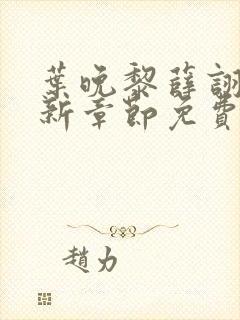 葉晚黎薛詡
新章節免費
趙力